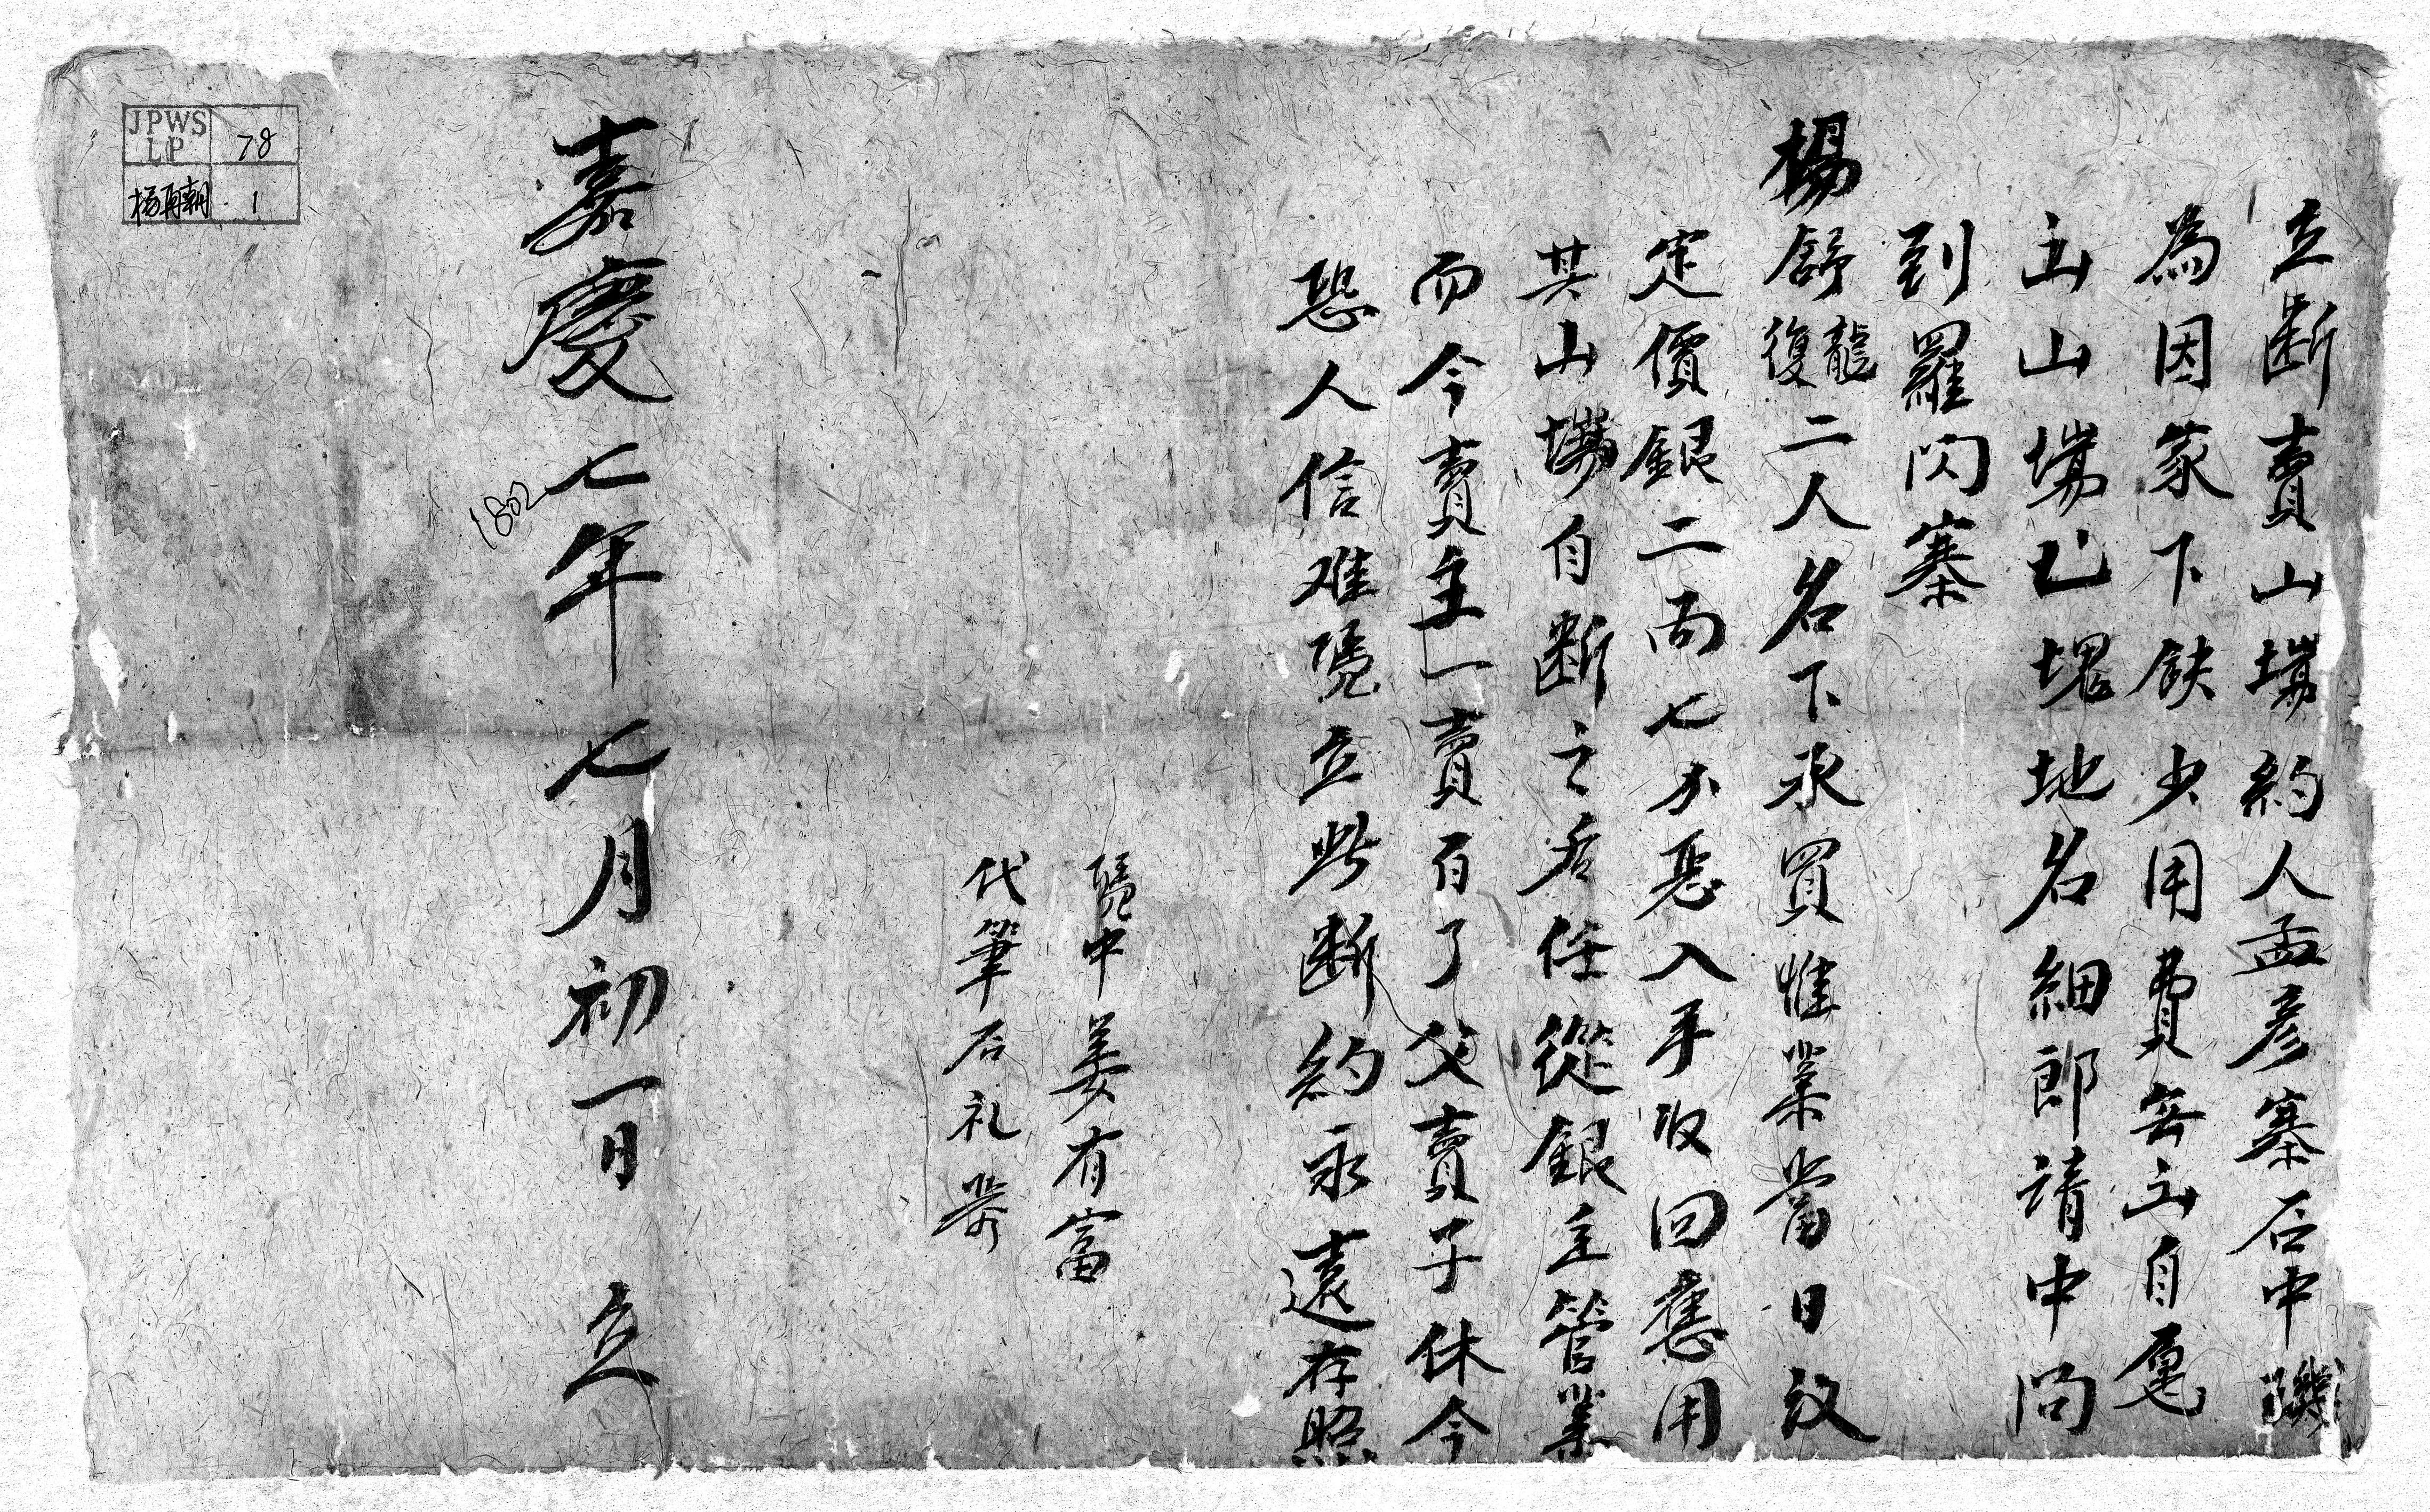 立断賣山塲約人孟彦寨石中璣
為因家下缺少用費無出自愿
出山塲乙塊地名細郎請中問
到羅閃寨
楊舒龍復二人名下承買惟業當日议
定價銀二両七分悉入手収回應用
其山塲自断之后任從銀主管業
而今賣主一賣百了父賣子休今
恐人信难憑立此断約永遠存照
憑中姜有富
代筆石礼
嘉慶七年七月初一日 立
1802
JPWS LP 78
楊再朝 1